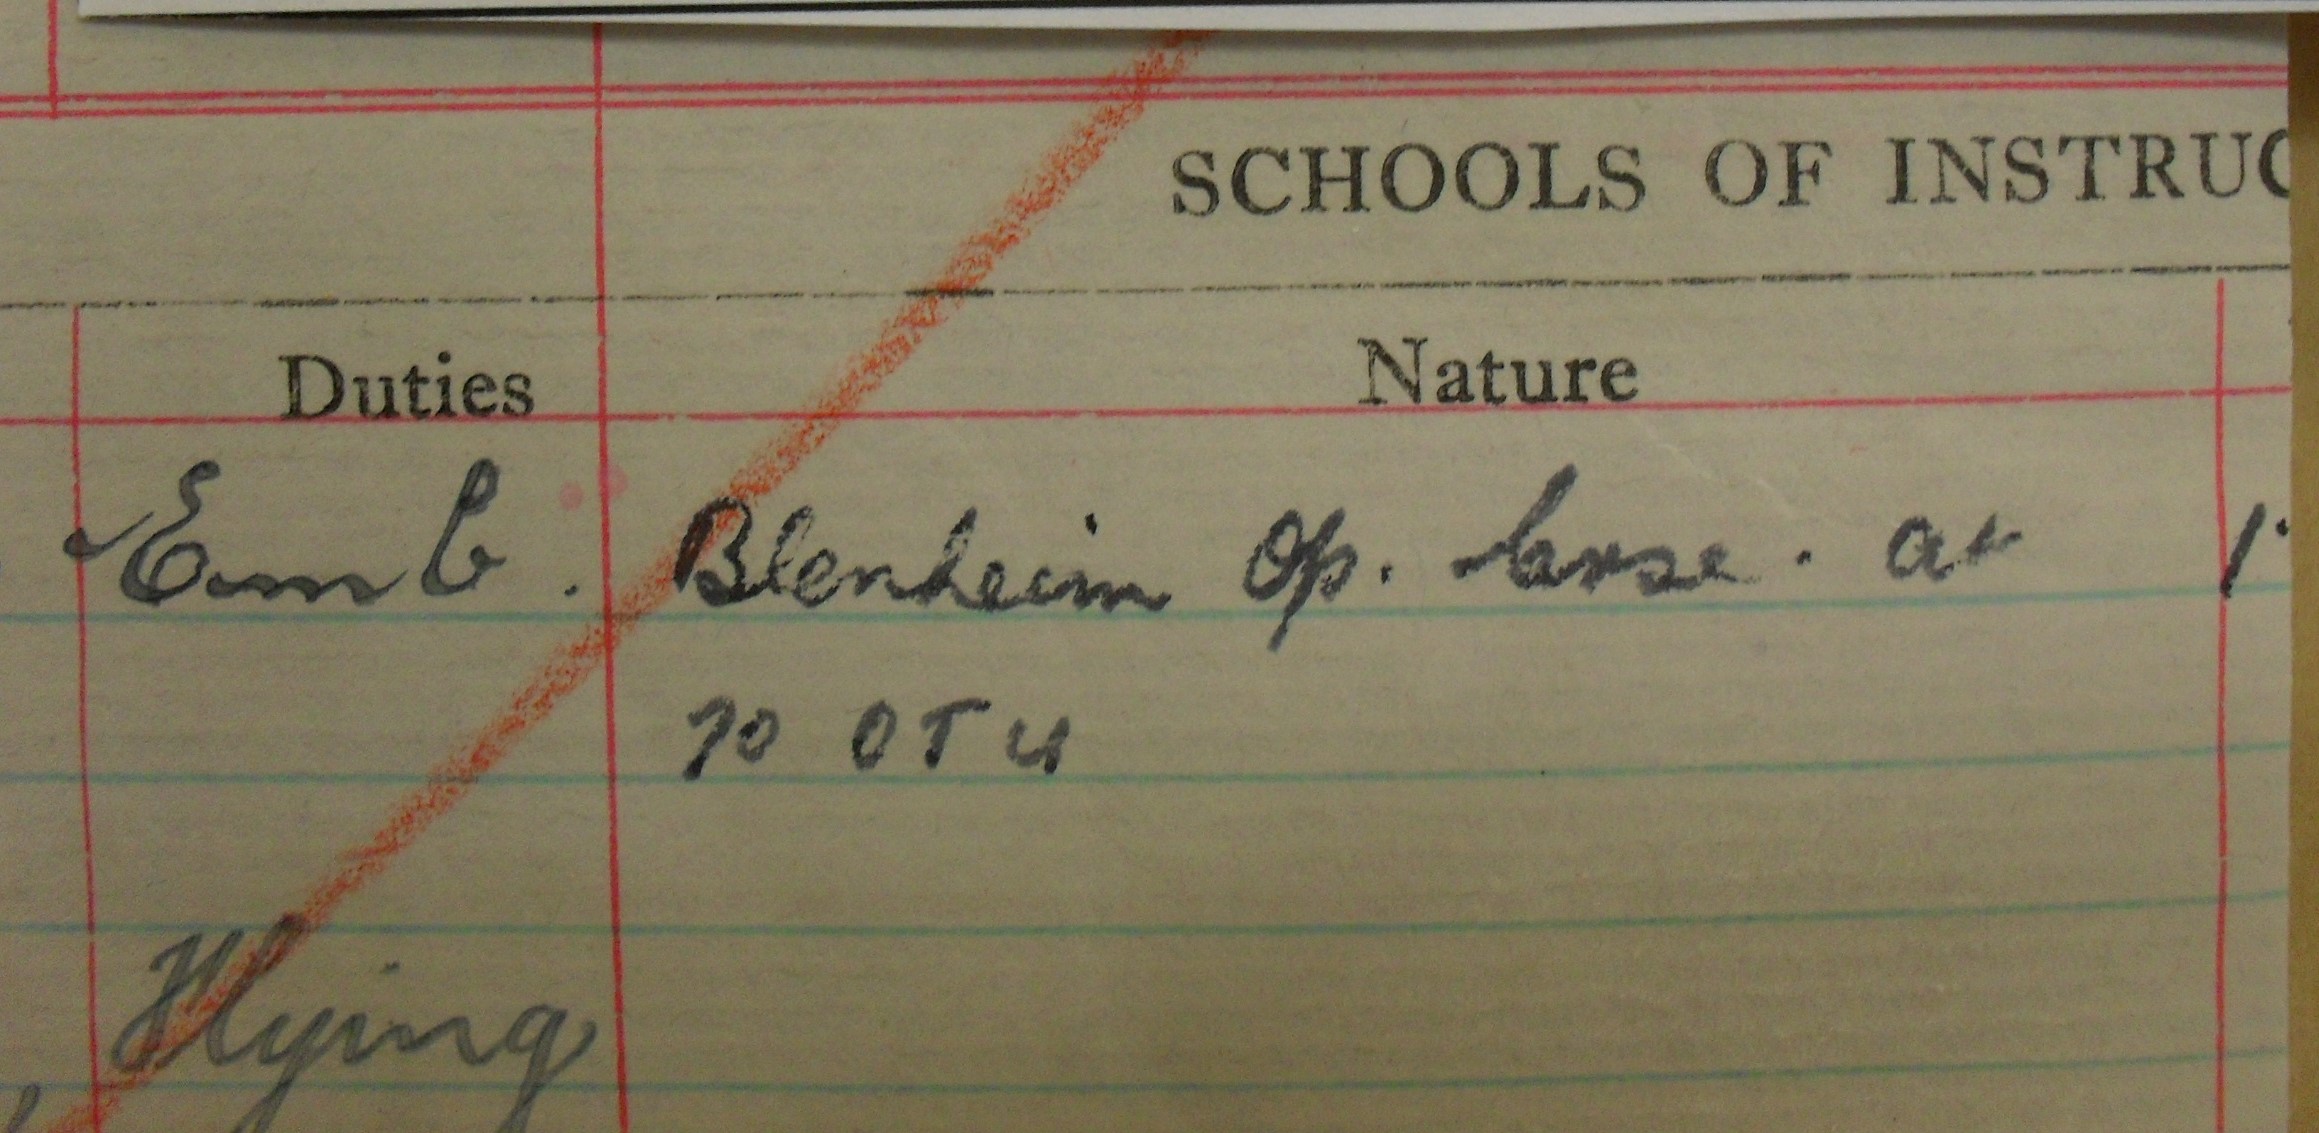 SCHOOLS OF INSTRUC
Duties
Nature
Emb. Blenheim Op. Course. at 1
70 OTU
Flying